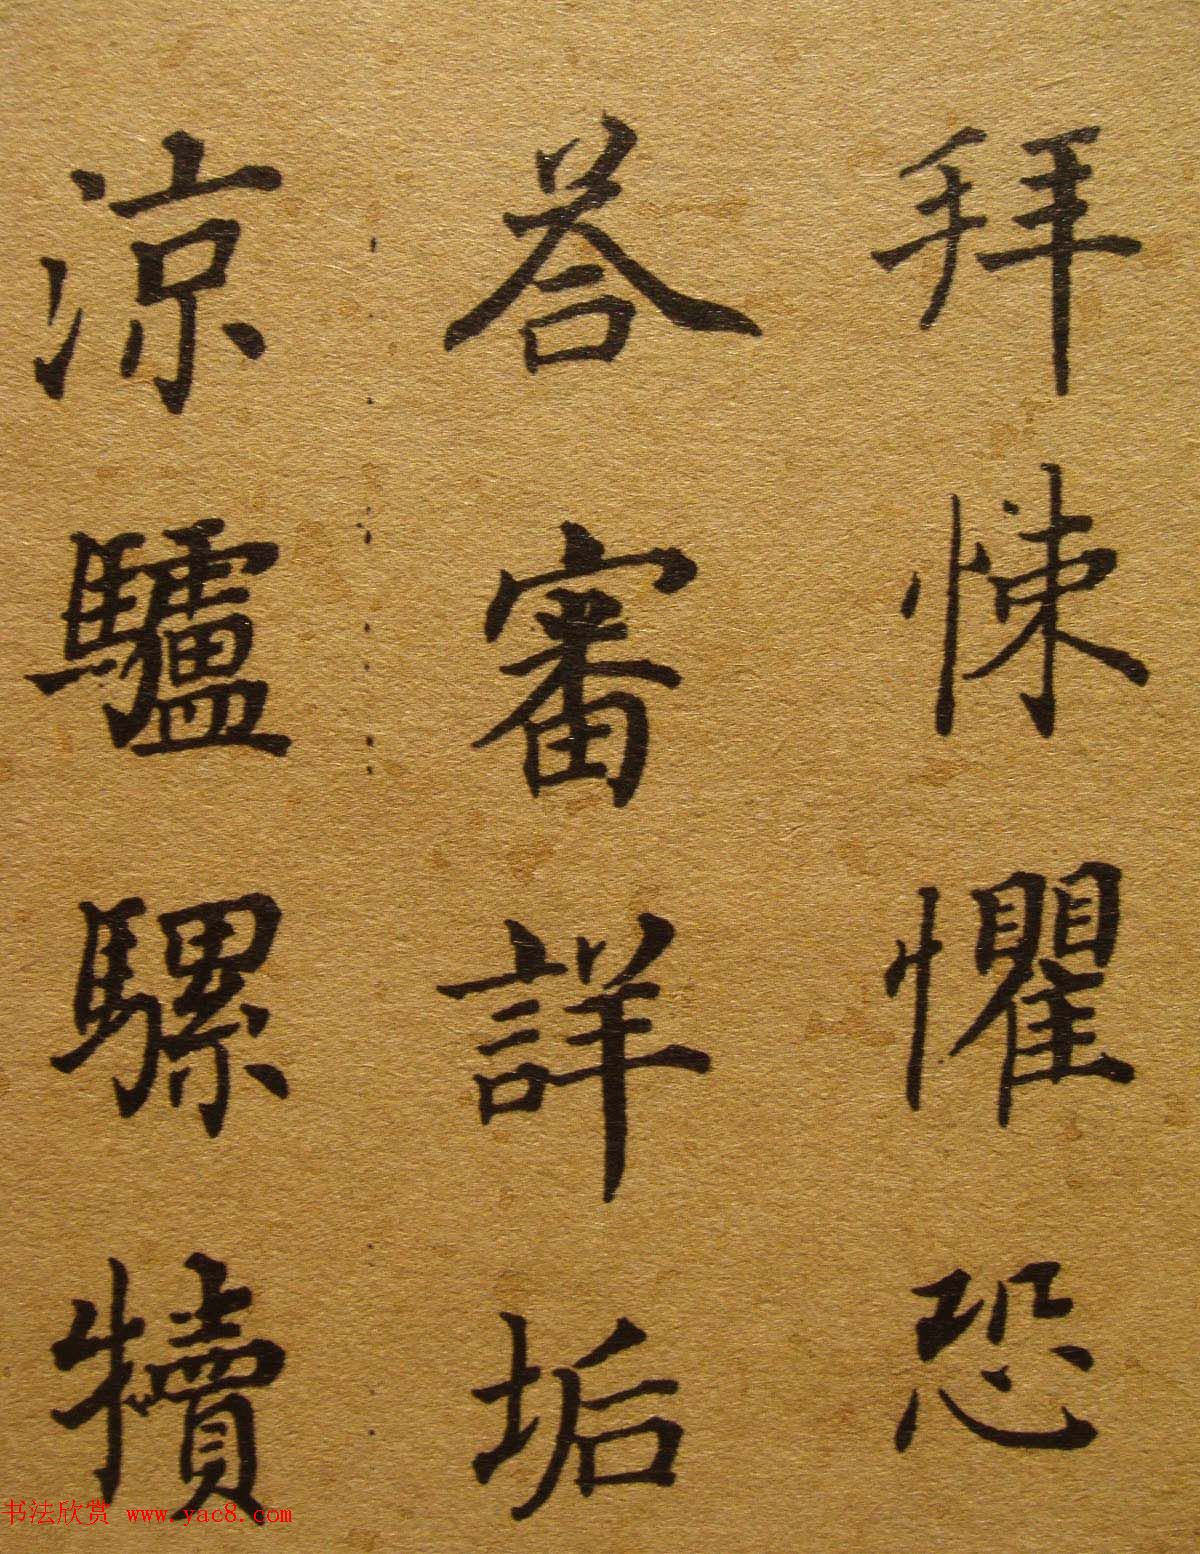 拜悚懼恐
荅審詳垢
涼驢騾犢
书法欣赏 www.yac8.com